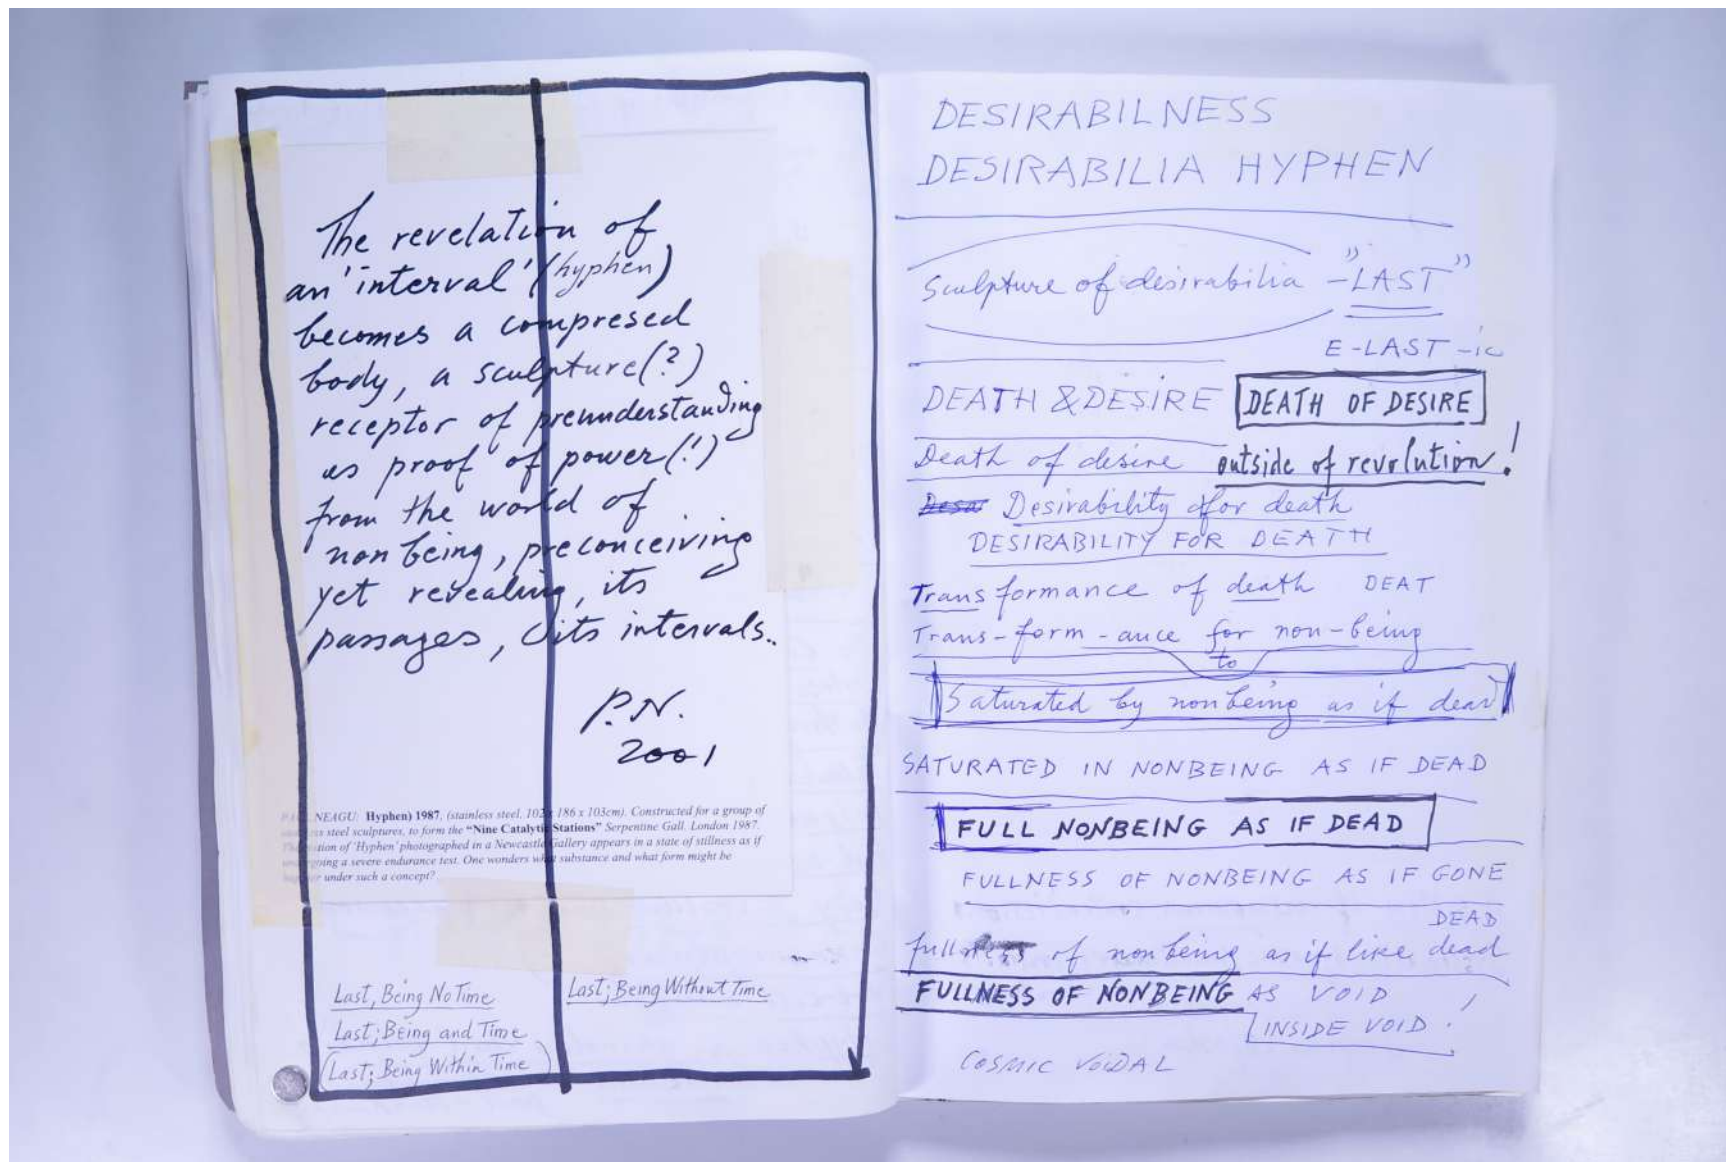 The revelation of
an 'interval' (hyphen)
becomes a compresed
body, a sculpture(?)
receptor of preunderstanding
as proof of power(!)
from the world of
non being, preconceiving
yet revealing, its
passages, its intervals..
P.N.
2001
NEAGU: Hyphen) 1987, (stainless steel, 102 x 186 x 103cm). Constructed for a group of
steel sculptures, to form the "Nine Catalytic Stations" Serpentine Gall. London 1987.
of 'Hyphen' photographed in a Newcastle Gallery appears in a state of stillness as if
a severe endurance test. One wonders what substance and what form might be
under such a concept?
Last, Being No Time
Last; Being and Time
(Last; Being Within Time)
Last; Being Without Time
DESIRABILNESS
DESIRABILIA HYPHEN
Sculpture of desirabilia - "LAST"
E-LAST-ic
DEATH & DESIRE DEATH OF DESIRE
Death of desire outside of revolution!
Desirability for death
DESIRABILITY FOR DEATH
Transformance of death DEAT
Trans-form-ance for non-being
to
Saturated by nonbeing as if dead
SATURATED IN NONBEING AS IF DEAD
FULL NONBEING AS IF DEAD
FULLNESS OF NONBEING AS IF GONE
DEAD
fullness of nonbeing as if like dead
FULLNESS OF NONBEING AS VOID
INSIDE VOID!
COSMIC VOIDAL